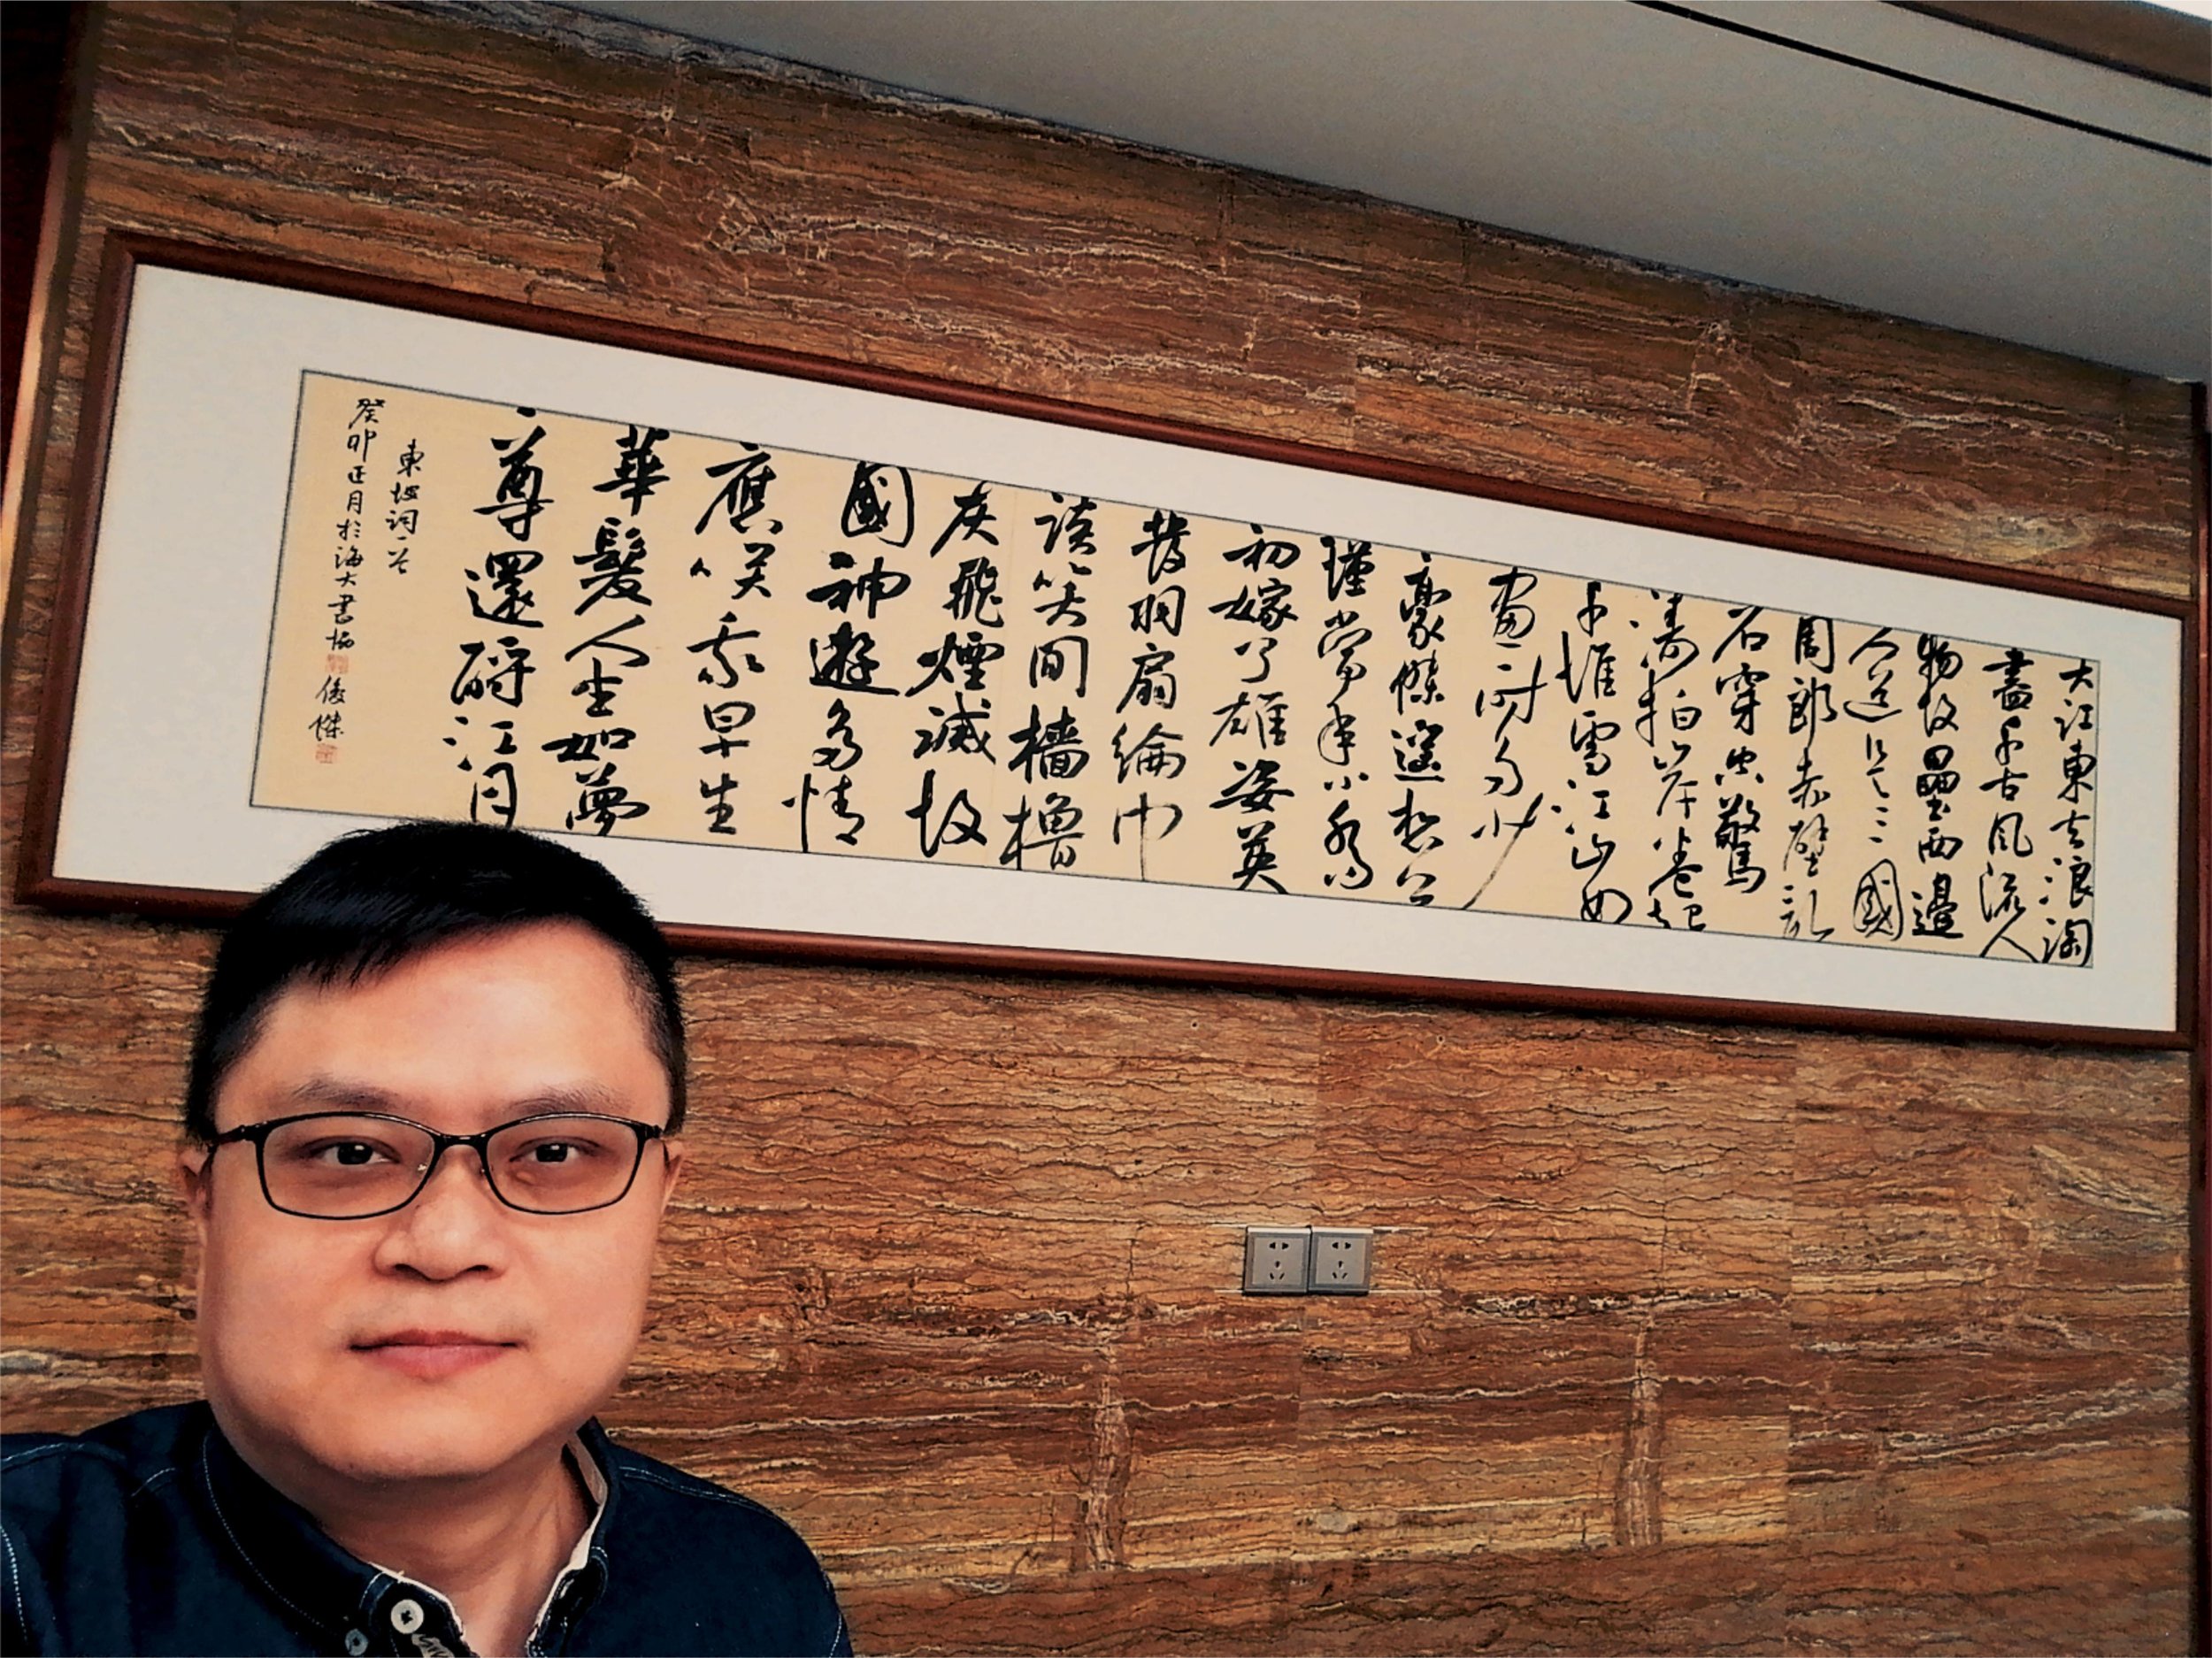 大江東去浪淘
盡千古風流人
物故壘西邊
人道是三國
周郎赤壁亂
石穿空驚
濤拍岸卷起
千堆雪江山如
畫一時多少
豪傑遙想公
瑾當年小喬
初嫁了雄姿英
發羽扇綸巾
談笑間檣櫓
灰飛煙滅故
國神遊多情
應笑我早生
華髮人生如夢
一尊還酹江月
東坡詞一首
癸卯正月於海大書協 俊傑